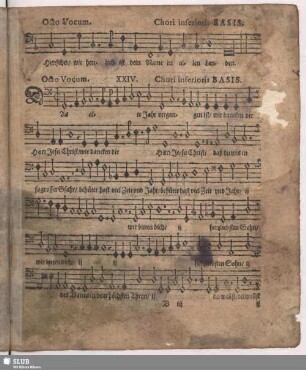 Octo Vocum. Chori inferioris BASIS.
Herrscher, wie herrlich ist dein Name in allen Landen.
Octo Vocum. XXIV. Chori inferioris BASIS.
Das alte Jahr vergangen ist/ wir dancken dir
Herr Jesu Christ/ wir dancken dir Herr Jesu Christ/ daß du uns in
so grosser Gfahr/ behütet hast viel Zeit und Jahr/ behütet hast viel Zeit und Jahr/ ij
wir bitten dich/ ij
wir bitten dich/ ij Sohn/
des Vatern in dem höchsten Thron/ ij du wollst/ du wollst
SLUB